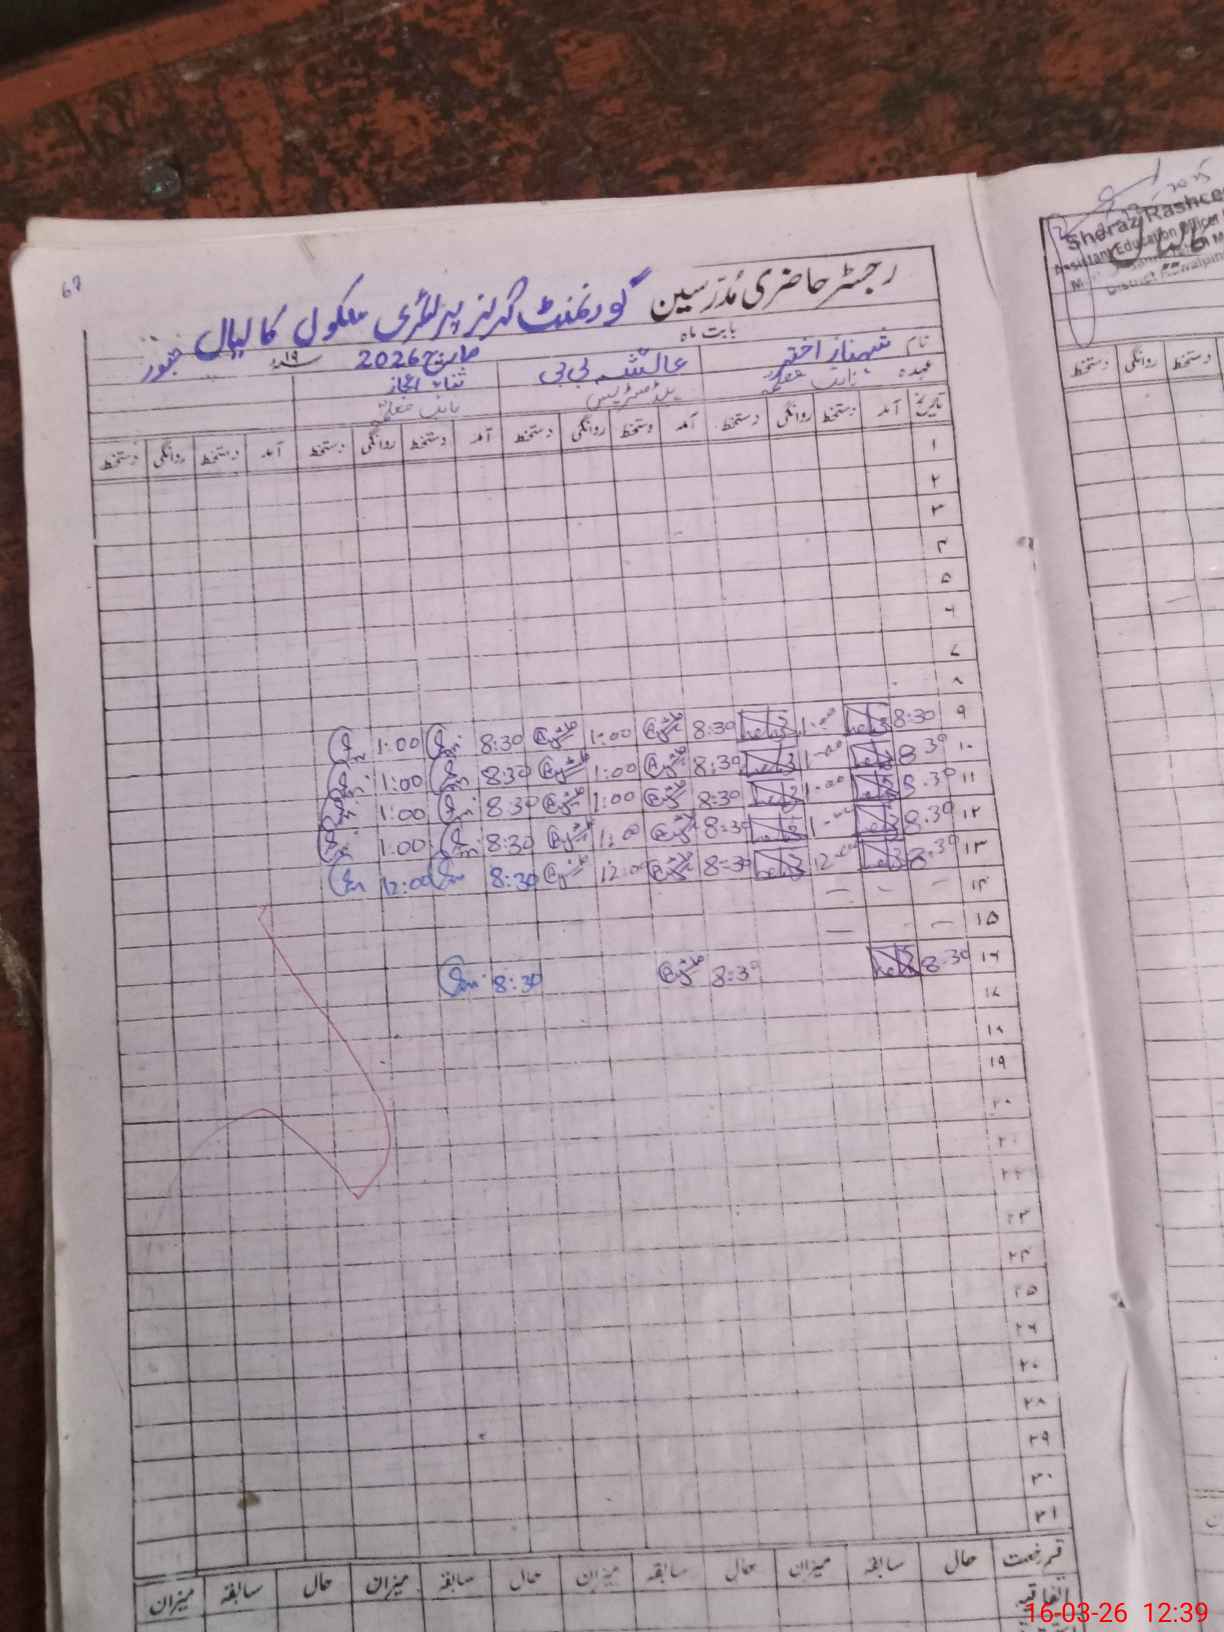 67
رجسٹر حاضری مُدرسین گورنمنٹ گرلز پرائمری سکول کالیال
بابت ماہ مارچ 2026 ۱۹ء
نام شہناز اختر عائشہ بی بی ثناء اعجاز
عہدہ نائب معلمہ ہیڈ مسٹریس نائب معلمہ
تاریخ آمد دستخط روانگی دستخط آمد دستخط روانگی دستخط آمد دستخط روانگی دستخط آمد دستخط روانگی دستخط
۱
۲
۳
۴
۵
۶
۷
۸
۹ 8:30 1:00 8:30 1:00 8:30 1:00
۱۰ 8:30 1:00 8:30 1:00 8:30 1:00
۱۱ 8:30 1:00 8:30 1:00 8:30 1:00
۱۲ 8:30 1:00 8:30 1:00 8:30 1:00
۱۳ 8:30 12:00 8:30 12:00 8:30 12:00
۱۴ — — —
۱۵ — — —
۱۶ 8:30 8:30 8:30
۱۷
۱۸
۱۹
۲۰
۲۱
۲۲
۲۳
۲۴
۲۵
۲۶
۲۷
۲۸
۲۹
۳۰
۳۱
قسم رخصت حال سابقہ میزان حال سابقہ میزان حال سابقہ میزان حال سابقہ میزان
اتفاقیہ
Sheraz Rasheed
Assistant Education Officer
District Rawalpin
دستخط روانگی دستخط
16-03-26 12:39